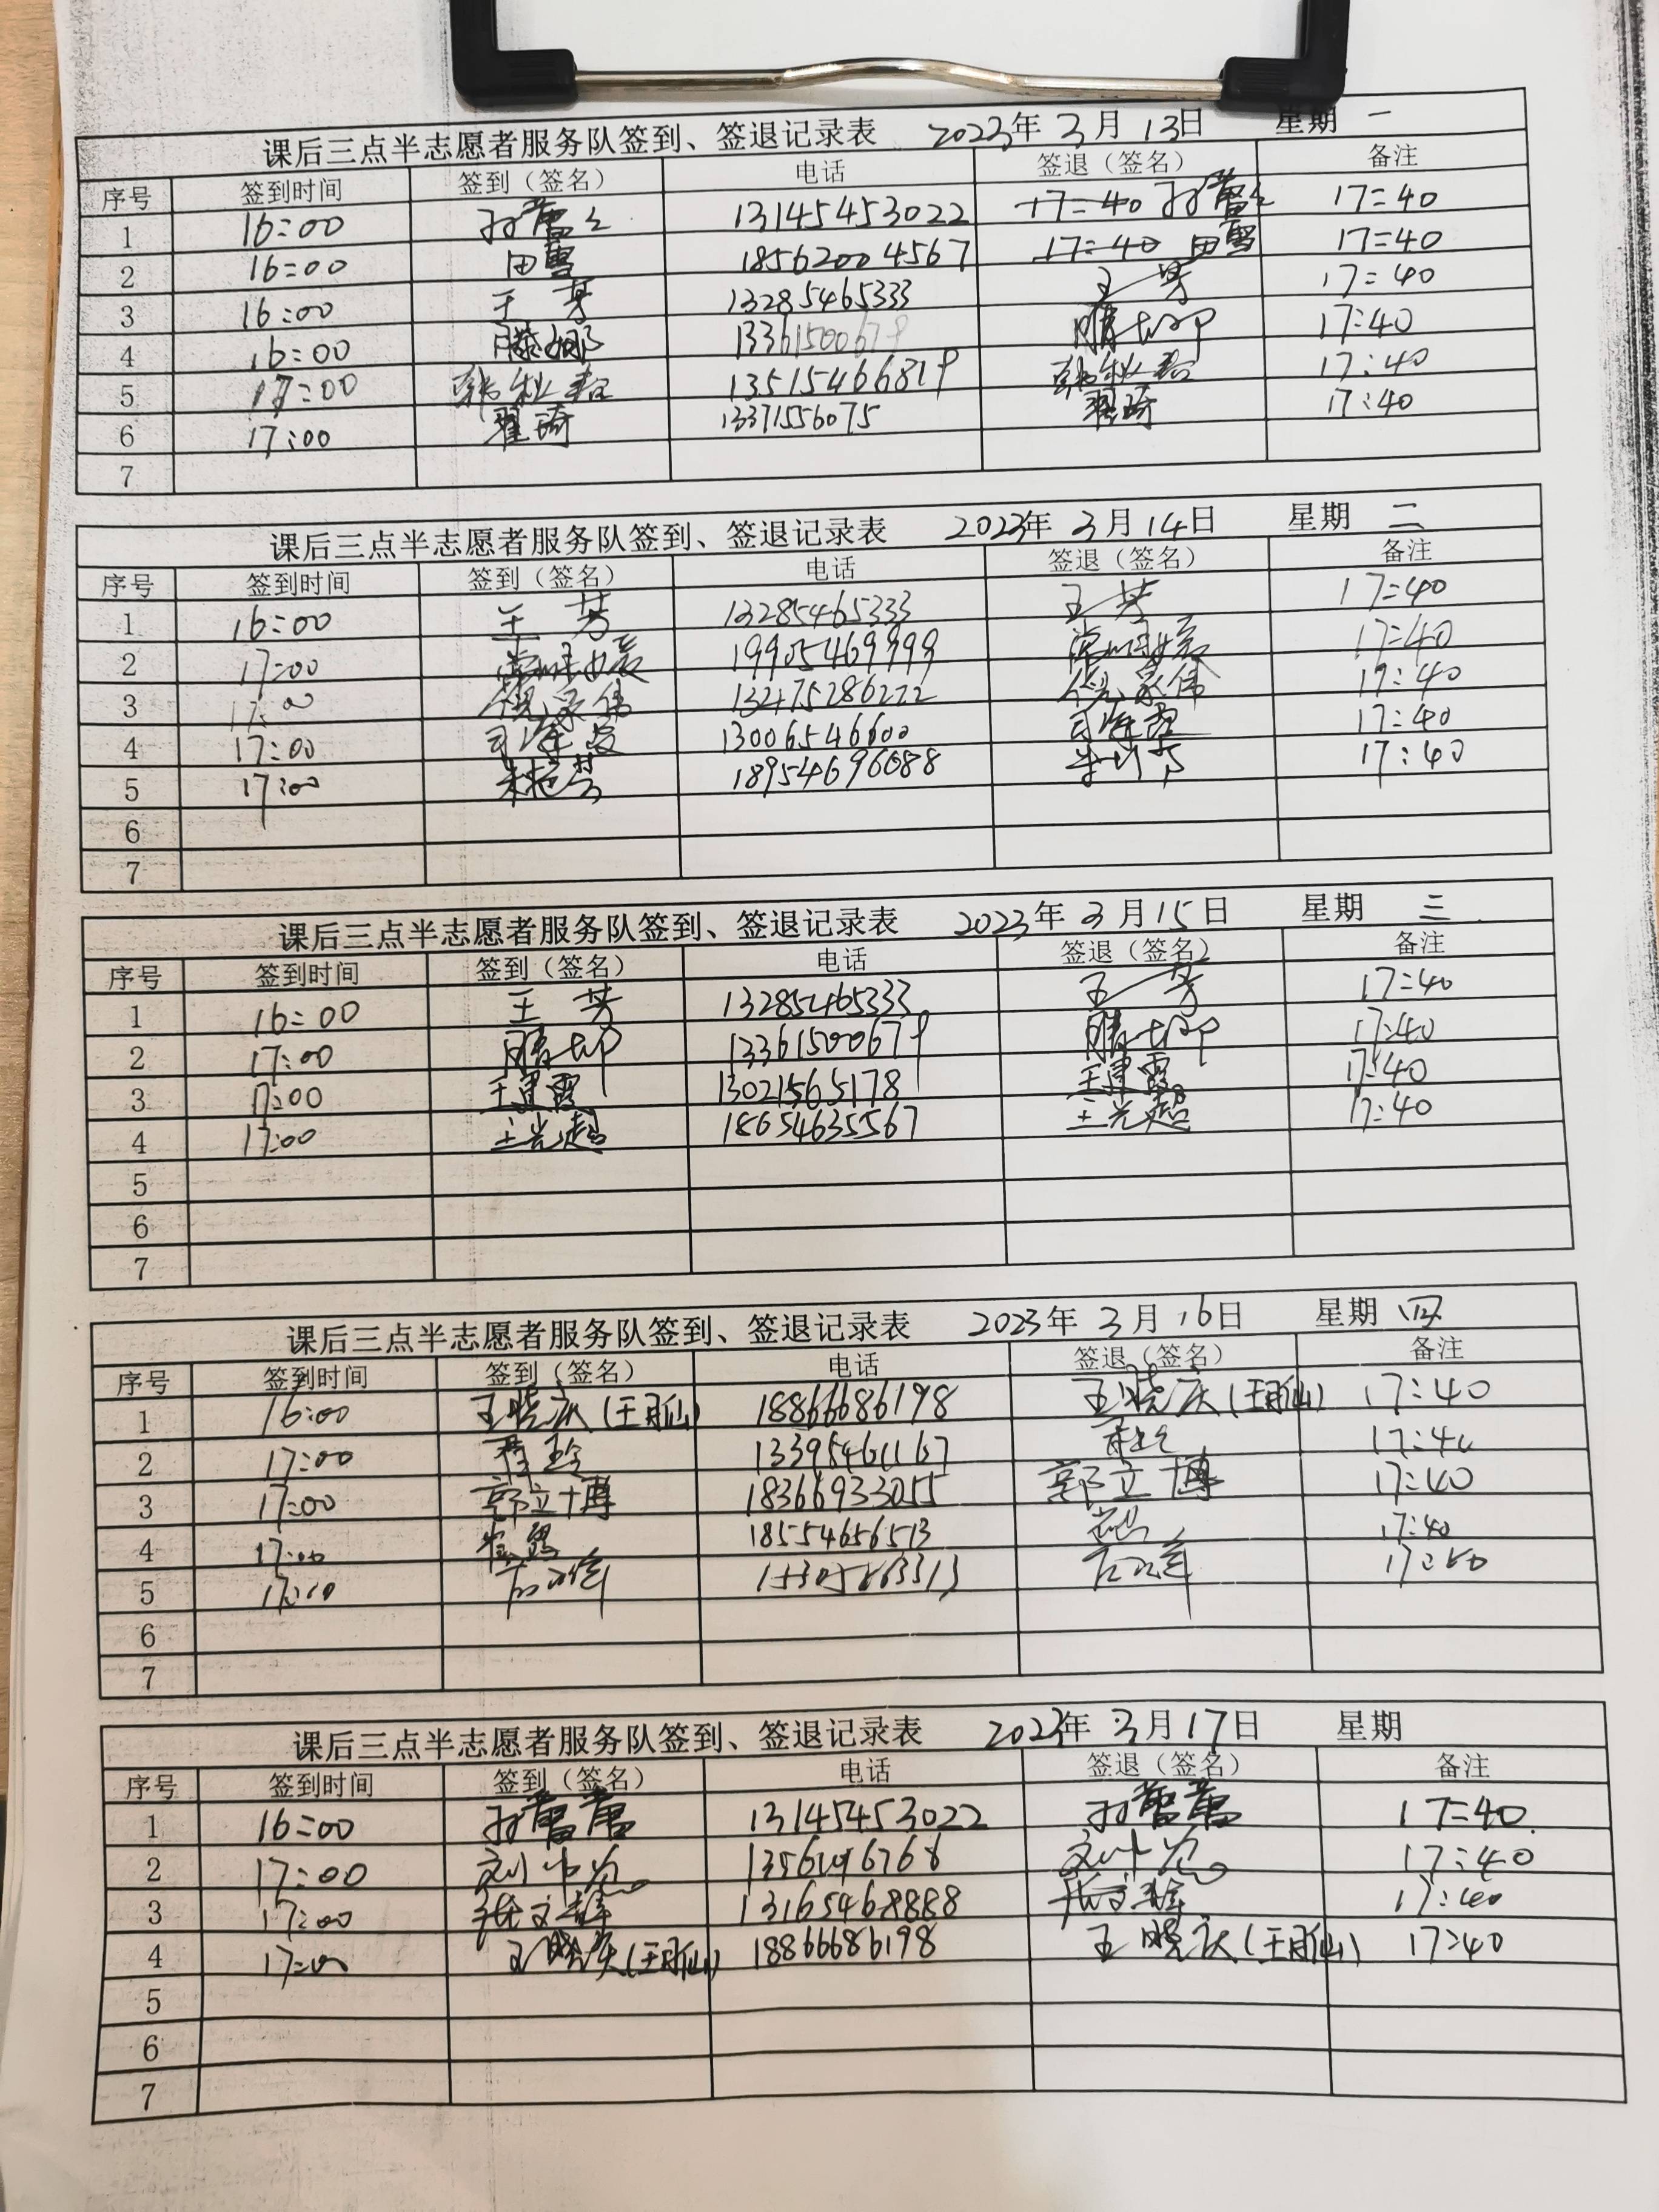 课后三点半志愿者服务队签到、签退记录表 2023年 3月 13日 星期 一
序号 签到时间 签到（签名） 电话 签退（签名） 备注
1 16:00 孙蕾 13145453022 17:40 孙蕾 17:40
2 16:00 田雪 18562004567 17:40 田雪 17:40
3 16:00 王芳 13285465333 王芳 17:40
4 16:00 滕娜 13361500679 17:40
5 17:00 韩秋君 13515466819 韩秋君 17:40
6 17:00 翟琦 13371556075 翟琦 17:40
7
课后三点半志愿者服务队签到、签退记录表 2023年 3月 14日 星期 二
序号 签到时间 签到（签名） 电话 签退（签名） 备注
1 16:00 王芳 13285465333 王芳 17:40
2 17:00 19905469999 17:40
3 17:00 倪家伟 13475286222 倪家伟 17:40
4 17:00 13006546600 17:40
5 17:00 18954696088 17:40
6
7
课后三点半志愿者服务队签到、签退记录表 2023年 3月 15日 星期 三
序号 签到时间 签到（签名） 电话 签退（签名） 备注
1 16:00 王芳 13285465333 王芳 17:40
2 17:00 13361500679 17:40
3 17:00 王建霞 13021565178 王建霞 17:40
4 17:00 王光超 18654635567 王光超 17:40
5
6
7
课后三点半志愿者服务队签到、签退记录表 2023年 3月 16日 星期 四
序号 签到时间 签到（签名） 电话 签退（签名） 备注
1 16:00 王晓庆(王承仙) 18866686198 王晓庆(王承仙) 17:40
2 17:00 13395461167 17:40
3 17:00 郭立博 18366933055 郭立博 17:40
4 17:00 18554656513 17:40
5
6
7
课后三点半志愿者服务队签到、签退记录表 2023年 3月 17日 星期
序号 签到时间 签到（签名） 电话 签退（签名） 备注
1 16:00 孙蕾蕾 13145453022 孙蕾蕾 17:40
2 17:00 17:40
3 17:00 张文静 13165468888 张文静 17:40
4 17:00 王晓庆(王承仙) 18866686198 王晓庆(王承仙) 17:40
5
6
7